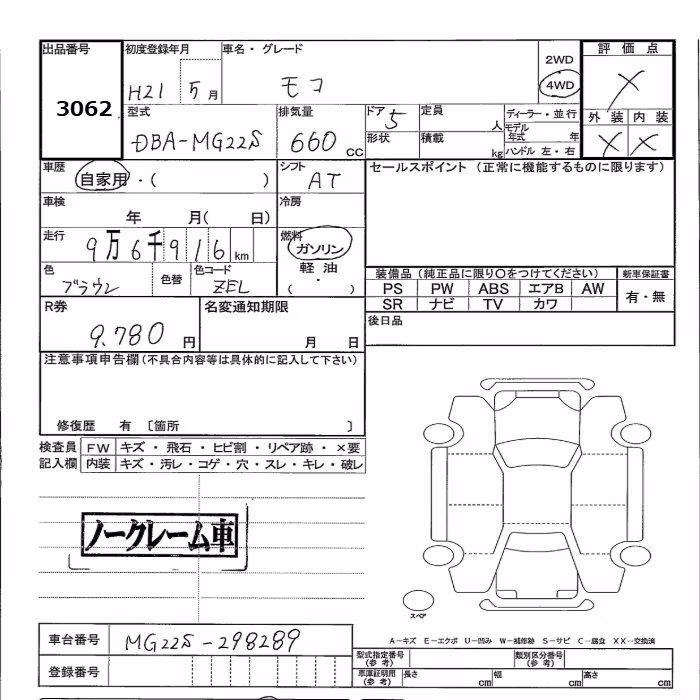 出品番号 初度登録年月 車名・グレード 評価点
3062 H21 5月 モコ 2WD 4WD X
型式 排気量 ドア 定員 ディーラー・並行 外装 内装
DBA-MG22S 660 CC 5 人 モデル年式 年 X X
形状 積載 kg ハンドル 左・右
車歴 シフト セールスポイント (正常に機能するものに限ります)
自家用・( ) AT
車検 冷房
年 月( 日)
走行 燃料
9万6千916km ガソリン
色 色替 色コード 軽油
ブラウン ZEL ・
( )
装備品(純正品に限り○をつけてください) 新車保証書
PS PW ABS エアB AW 有・無
SR ナビ TV カワ
R券 名変通知期限 後日品
9.780円 月 日
注意事項申告欄(不具合内容等は具体的に記入して下さい)
修復歴 有 〔箇所 〕
検査員 FW キズ・飛石・ヒビ割・リペア跡・×要
記入欄 内装 キズ・汚レ・コゲ・穴・スレ・キレ・破レ
ノークレーム車
スペア
A-キズ E-エクボ U-凹み W-補修跡 S-サビ C-腐食 XX-交換済
車台番号 MG22S-298289
登録番号
型式指定番号(参考) 類別区分番号(参考)
車庫証明用(参考) 長さ cm 幅 cm 高さ cm